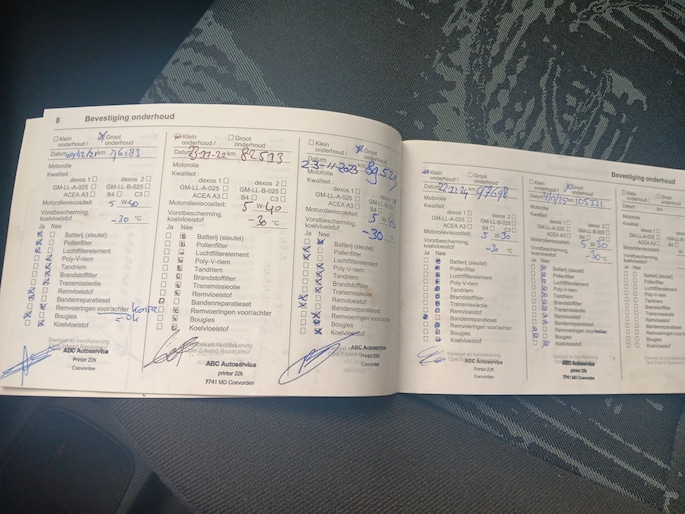 6 Bevestiging onderhoud
Klein onderhoud / Groot onderhoud
Datum km 76183
Motorolie
Kwaliteit
dexos 1 dexos 2
GM-LL-A-025 GM-LL-B-025
ACEA A3 B4 C3
Motorolieviscositeit: 5 W-40
Vorstbescherming, koelvloeistof -30 °C
Ja Nee
Batterij (sleutel)
Pollenfilter
Luchtfilterelement
Poly-V-riem
Tandriem
Brandstoffilter
Transmissieolie
Remvloeistof
Bandenreparatieset
Remvoeringen voor/achter
= ok
Bougies
Koelvloeistof
Stempel en handtekening
ABC Autoservice
Printer 22K
Coevorden
Klein onderhoud / Groot onderhoud
Datum km 82513
Motorolie
Kwaliteit
dexos 1 dexos 2
GM-LL-A-025 GM-LL-B-025
ACEA A3 B4 C3
Motorolieviscositeit: 5 W-40
Vorstbescherming, koelvloeistof -30 °C
Ja Nee
Batterij (sleutel)
Pollenfilter
Luchtfilterelement
Poly-V-riem
Tandriem
Brandstoffilter
Transmissieolie
Remvloeistof
Bandenreparatieset
Remvoeringen voor/achter
Bougies
Koelvloeistof
ABC Autoservice
printer 22k
7741 MD Coevorden
Klein onderhoud / Groot onderhoud
Datum 23-11-2023 km
Motorolie
Kwaliteit
dexos 1 dexos 2
GM-LL-A-025 GM-LL-B-025
ACEA A3 B4 C3
Motorolieviscositeit: 5 W-40
Vorstbescherming, koelvloeistof -30 °C
Ja Nee
Batterij (sleutel)
Pollenfilter
Luchtfilterelement
Poly-V-riem
Tandriem
Brandstoffilter
Transmissieolie
Remvloeistof
Bandenreparatieset
Remvoeringen voor/achter
Bougies
Koelvloeistof
ABC Autoservice
Printer 22K
Coevorden
Bevestiging onderhoud
Klein onderhoud / Groot onderhoud
Datum 22-11-24 km 97698
Motorolie
Kwaliteit
dexos 1 dexos 2
GM-LL-A-025 GM-LL-B-025
ACEA A3 B4 C3
Motorolieviscositeit: 5 W-30
Vorstbescherming, koelvloeistof -30 °C
Ja Nee
Batterij (sleutel)
Pollenfilter
Luchtfilterelement
Poly-V-riem
Tandriem
Brandstoffilter
Transmissieolie
Remvloeistof
Bandenreparatieset
Remvoeringen voor/achter
Bougies
Koelvloeistof
Stempel en handtekening
ABC Autoservice
Printer 22K
Coevorden
Klein onderhoud / Groot onderhoud
Datum km
Motorolie
Kwaliteit
dexos 1 dexos 2
GM-LL-A-025 GM-LL-B-025
ACEA A3 B4 C3
Motorolieviscositeit: 5 W-30
Vorstbescherming, koelvloeistof -30 °C
Ja Nee
Batterij (sleutel)
Pollenfilter
Luchtfilterelement
Poly-V-riem
Tandriem
Brandstoffilter
Transmissieolie
Remvloeistof
Bandenreparatieset
Remvoeringen voor/achter
Bougies
Koelvloeistof
Stempel en handtekening
ABC Autoservice
7741 MD Coevorden
Klein onderhoud / Groot onderhoud
Datum km
Motorolie
Kwaliteit
dexos 1 dexos 2
GM-LL-A-025 GM-LL-B-025
ACEA A3 B4 C3
Motorolieviscositeit:
Vorstbescherming, koelvloeistof
Ja Nee
Batterij (sleutel)
Pollenfilter
Luchtfilterelement
Poly-V-riem
Tandriem
Brandstoffilter
Transmissieolie
Remvloeistof
Bandenreparatieset
Remvoeringen voor/achter
Bougies
Koelvloeistof